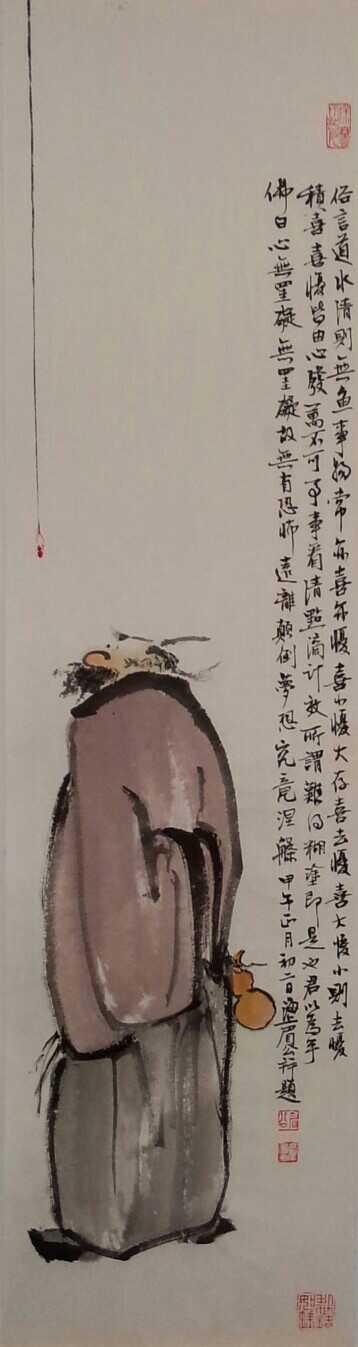 俗言道水清則無魚事物常亦喜亦憂喜小憂大存喜去憂喜大憂小則去憂
積喜喜憂皆由心發萬不可事事看清點滴計較所謂難得糊塗即是也君以為乎
佛曰心無罣礙無罣礙故無有恐怖遠離顛倒夢想究竟涅槃甲午正月初二日眉公并題